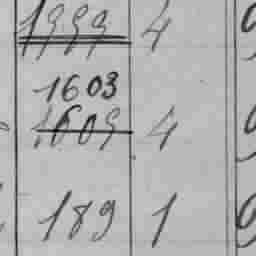 1999 4
1603
1609 4
189 1